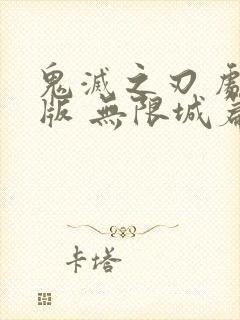 鬼滅之刃
版 無限城
卡塔